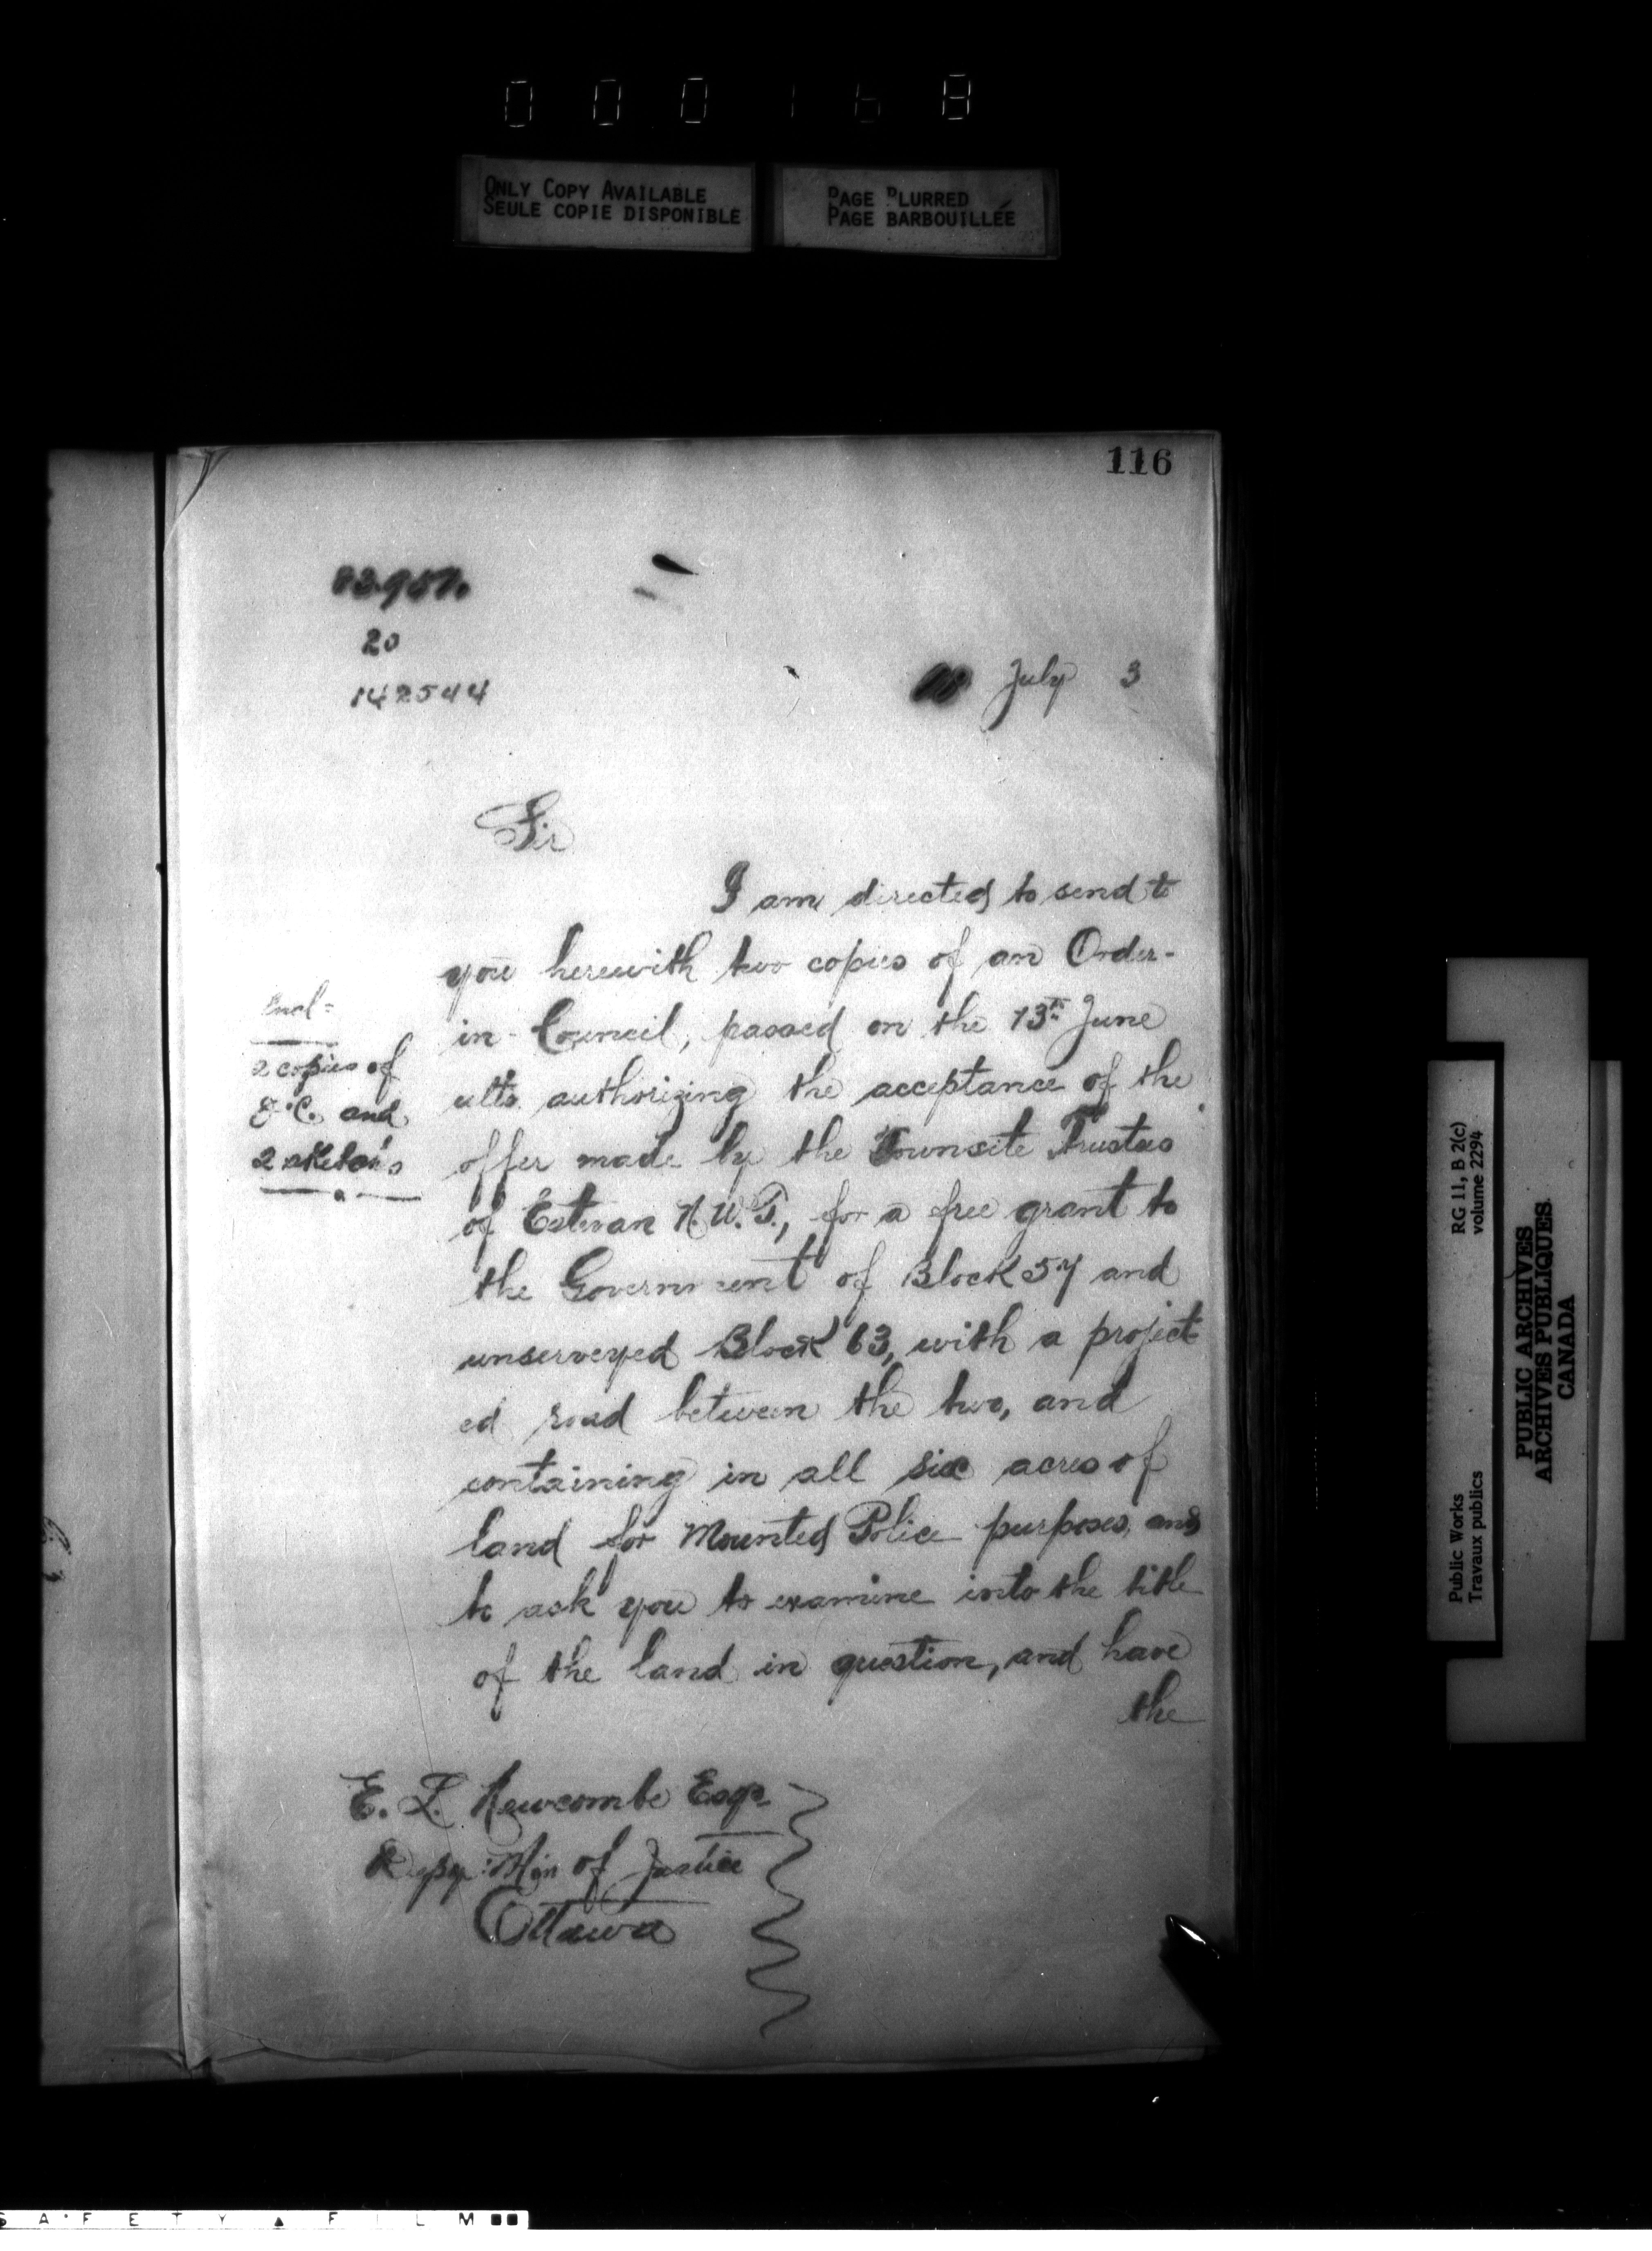 ONLY COPY AVAILABLE
SEULE COPIE DISPONIBLE
PAGE BLURRED
PAGE BARBOUILLÉE
116
20
142544
July 3
Sir
I am directed to send to
you herewith two copies of an Order-
in-Council, passed on the 13th June
ulto. authorizing the acceptance of the
offer made by the Townsite Trustees
of Estevan N.W.T., for a free grant to
the Government of Block 57 and
unserveyed Block 63, with a project
ed road between the two, and
containing in all six acres of
land for Mounted Police purposes, and
to ask you to examine into the title
of the land in question, and have
the
Encl-
2 copies of
O.C. and
2
E. L. Newcombe Esqr.
Depy: Min of Justice
Ottawa
Public Works
Travaux publics
RG 11, B 2(c)
volume 2294
PUBLIC ARCHIVES
ARCHIVES PUBLIQUES
CANADA
SAFETY FILM